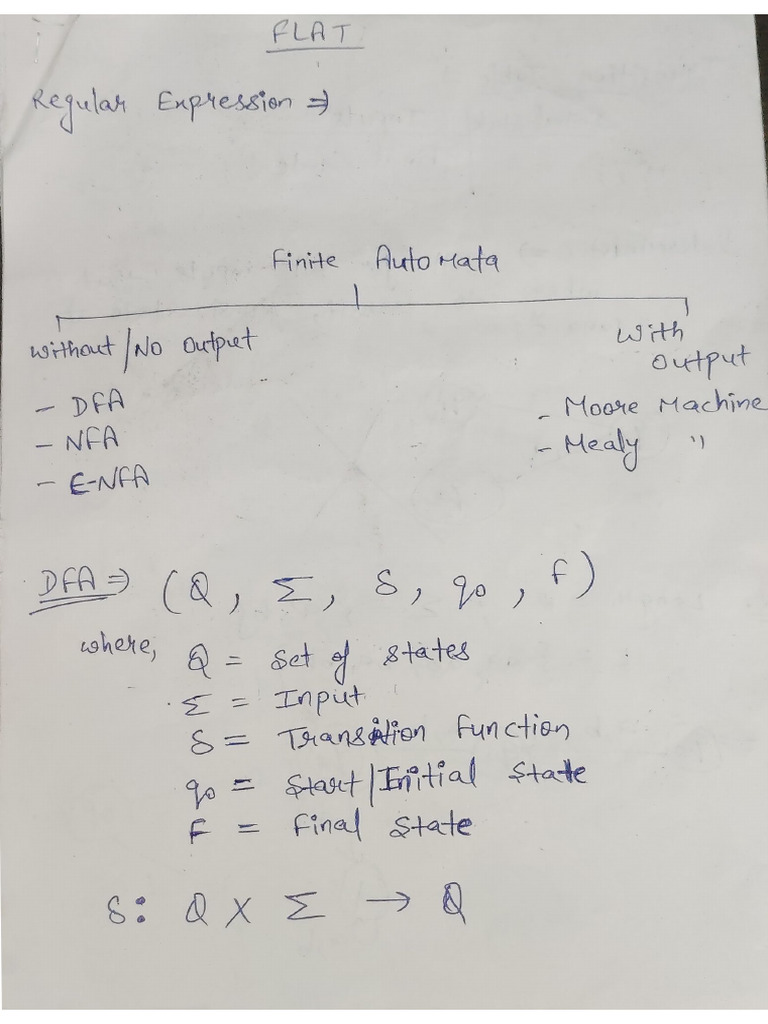 FLAT
Regular Expression ⇒
Finite Automata
Without/No Output
With
Output
- DFA
- NFA
- E-NFA
- Moore Machine
- Mealy "
DFA ⇒ (Q, Σ, δ, q0, F)
where,
Q = Set of states
Σ = Input
δ = Transition function
q0 = Start/Initial State
F = Final State
δ: Q X Σ → Q